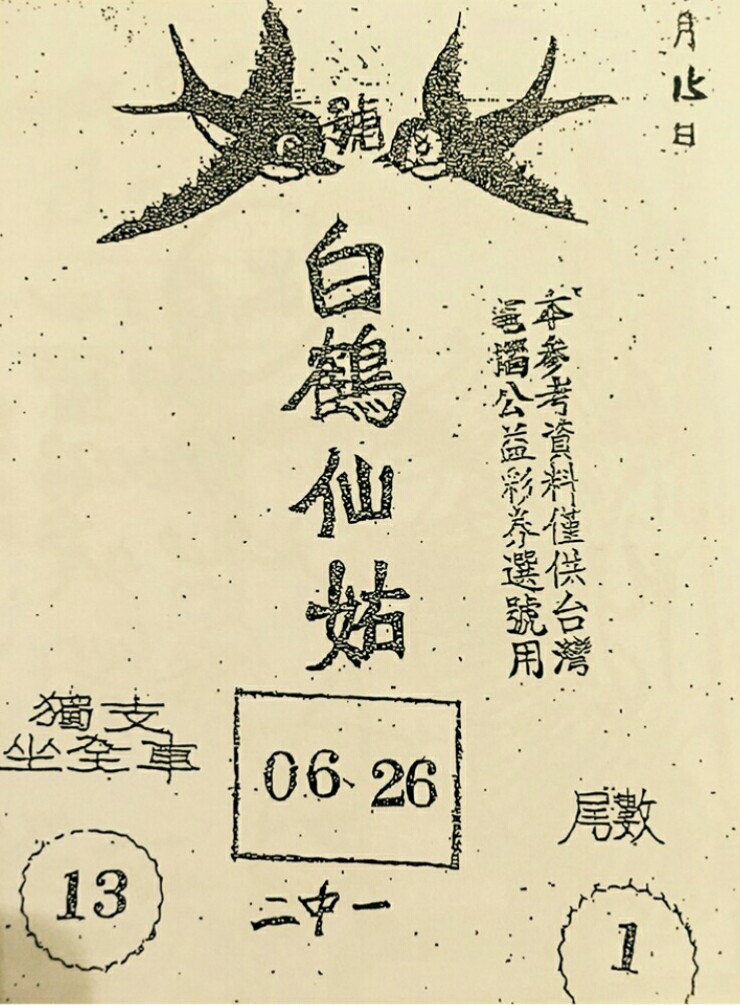 月15日
號
白鶴仙姑
本參考資料僅供台灣
電腦公益彩券選號用
獨支
坐全車
13
06、26
二中一
尾數
1